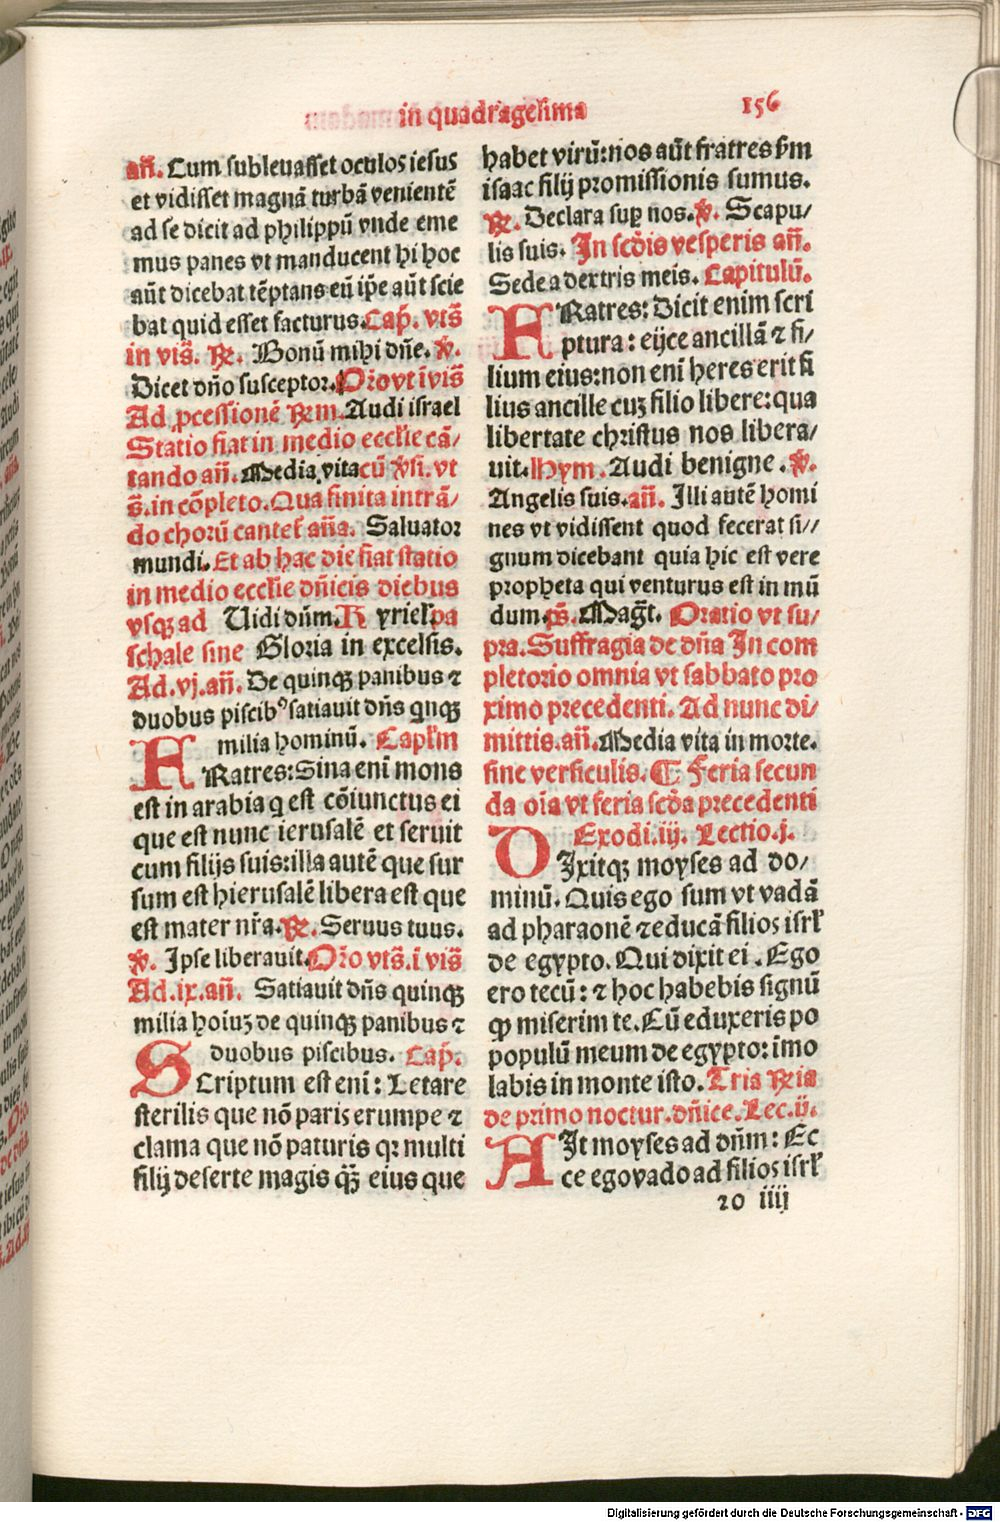 in̄ quadragesima 156
an̄. Cum subleuasset oculos iesus
et vidisset magnā turbā venientē
ad se dicit ad philippū vnde eme
mus panes vt manducent hi hoc
aūt dicebat tēptans eū ip̄e aūt scie
bat quid esset facturus. Cap̄. vts̄
in vis̄. ℟. Bonū mihi dn̄e. ℣.
Dicet dn̄o susceptor. Or̄o vt ī vis̄
Ad ꝓcessionē ℟m. Audi israel
Statio fiat in medio eccl̄ie cā/
tando an̄. Media vita cū ℣si. vt
s̄. in cōpleto. Qua finita intrā/
do chorū cantet̄ an̄a. Saluator
mundi. Et ab hac die fiat statio
in medio eccl̄ie dn̄icis diebus
vsqꝫ ad Uidi dn̄m. K yriel̄ pa
schale sine Gloria in excelsis.
Ad .vj. an̄. De quinqꝫ panibus ⁊
duobus piscibꝰ satiauit dn̄s qnqꝫ
milia hominū. Capl̄m
FRatres: Sina enī mons
est in arabia q est cōiunctus ei
que est nunc ierusalē et seruit
cum filijs suis: illa autē que sur
sum est hierusalē libera est que
est mater nr̄a. ℟. Seruus tuus.
℣. Ipse liberauit. Or̄o vts̄. ī vis̄
Ad .ix. an̄. Satiauit dn̄s quinqꝫ
milia hoiuꝫ de quinqꝫ panibus ⁊
duobus piscibus. Cap̄.
SCriptum est enī: Letare
sterilis que nō paris erumpe ⁊
clama que nō paturis qꝛ multi
filij deserte magis qꝫ̄ eius que
habet virū: nos aūt fratres s̄m
isaac filij promissionis sumus.
℟. Declara suꝑ nos. ℣. Scapu/
lis suis. In sc̄dis vesperis an̄.
Sede a dextris meis. Capitulū.
FRatres: Dicit enim scri
ptura: eijce ancillā ⁊ fi/
lium eius: non enī heres erit fi
lius ancille cuꝫ filio libere: qua
libertate christus nos libera/
uit. Hym. Audi benigne. ℣.
Angelis suis. an̄. Illi autē homi
nes vt vidissent quod fecerat si//
gnum dicebant quia hic est vere
propheta qui venturus est in mū
dum. ps̄. Maḡt. Oratio vt su/
pra. Suffragia de dn̄a In com
pletorio omnia vt sabbato pro
ximo precedenti. Ad nunc di/
mittis. an̄. Media vita in morte.
sine versiculis. ¶ Feria secun
da oīa vt feria sc̄da precedenti
Exodi .iij. Lectio .j.
DIxitqꝫ moyses ad do/
minū. Quis ego sum vt vadā
ad pharaonē ⁊ educā filios isrl̄
de egypto. Qui dixit ei. Ego
ero tecū: ⁊ hoc habebis signū
ꝙ miserim te. Cū eduxeris po
populū meum de egypto: īmo
labis in monte isto. Tria ℟ia
de primo noctur. dn̄ice. Lec. ij.
AIt moyses ad dn̄m: Ec
ce ego vado ad filios isrl̄
20 iiij
Digitalisierung gefördert durch die Deutsche Forschungsgemeinschaft - DFG